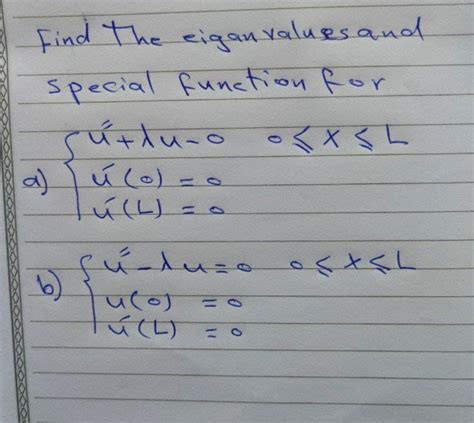 Find The eiganvalues and
special function for
a) { u″ + λu - 0 0 ⩽ x ⩽ L
u′(0) = 0
u′(L) = 0
b) { u″ - λu = 0 0 ⩽ x ⩽ L
u(0) = 0
u′(L) = 0